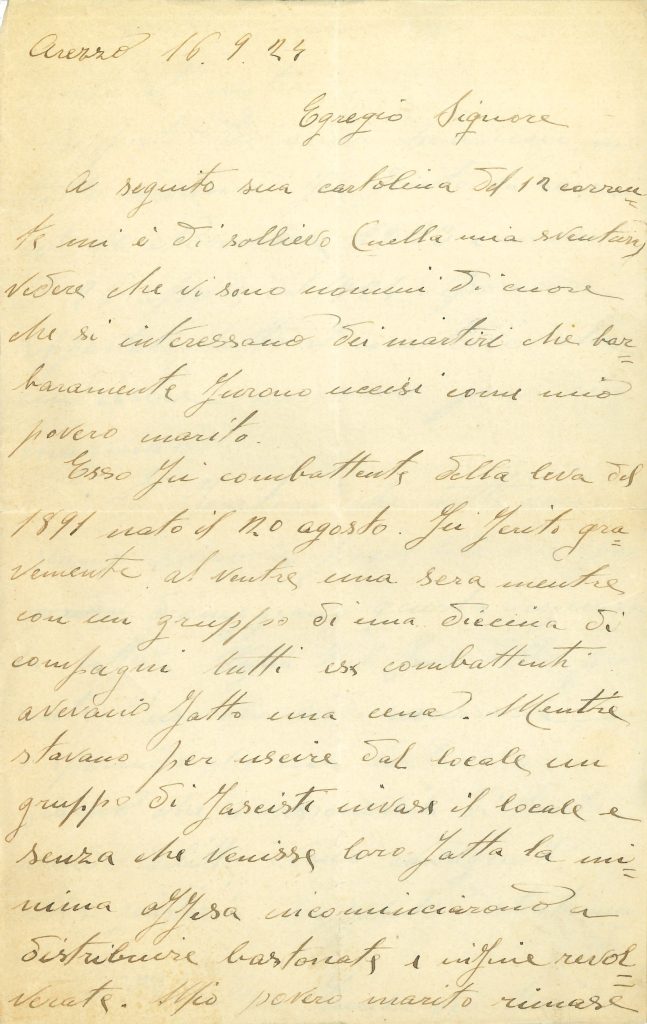 Arezzo 16. 9. 24
Egregio Signore
A seguito sua cartolina del 12 corren=
te mi è di sollievo (nella mia sventura)
vedere che vi sono uomini di cuore
che si interessano dei martiri che bar=
baramente furono uccisi come mio
povero marito.
Esso fu combattente della leva del
1891 nato il 20 agosto. Fu ferito gra=
vemente al ventre una sera mentre
con un gruppo di una diecina di
compagni tutti ex combattenti
avevano fatto una cena. Mentre
stavano per uscire dal locale un
gruppo di fascisti invase il locale e
senza che venisse loro fatta la mi=
nima offesa incominciarono a
distribuire bastonate e infine revol=
verate. Mio povero marito rimase